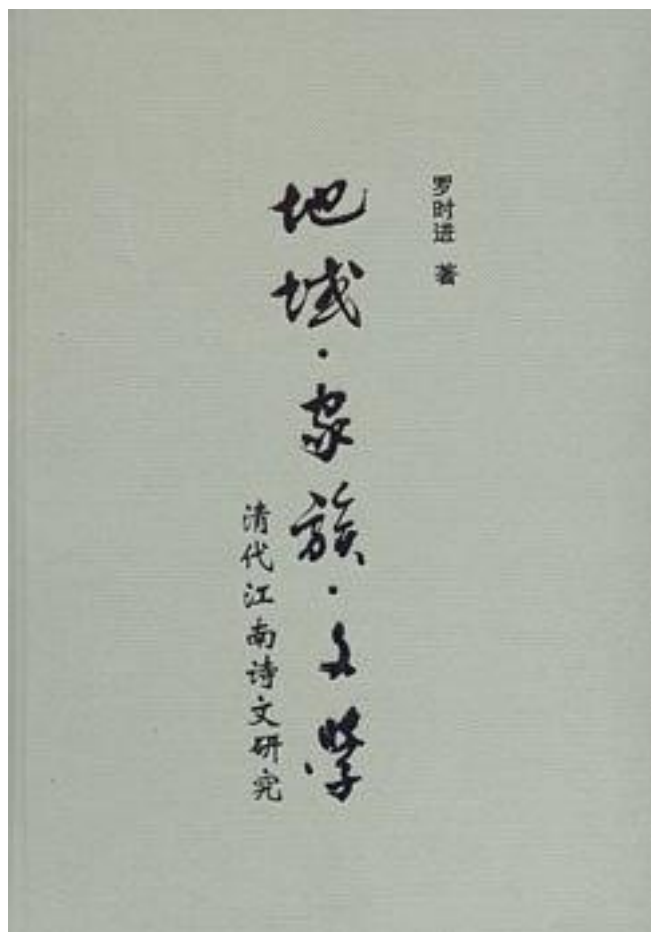 罗时进 著
地域·家族·文学
清代江南诗文研究